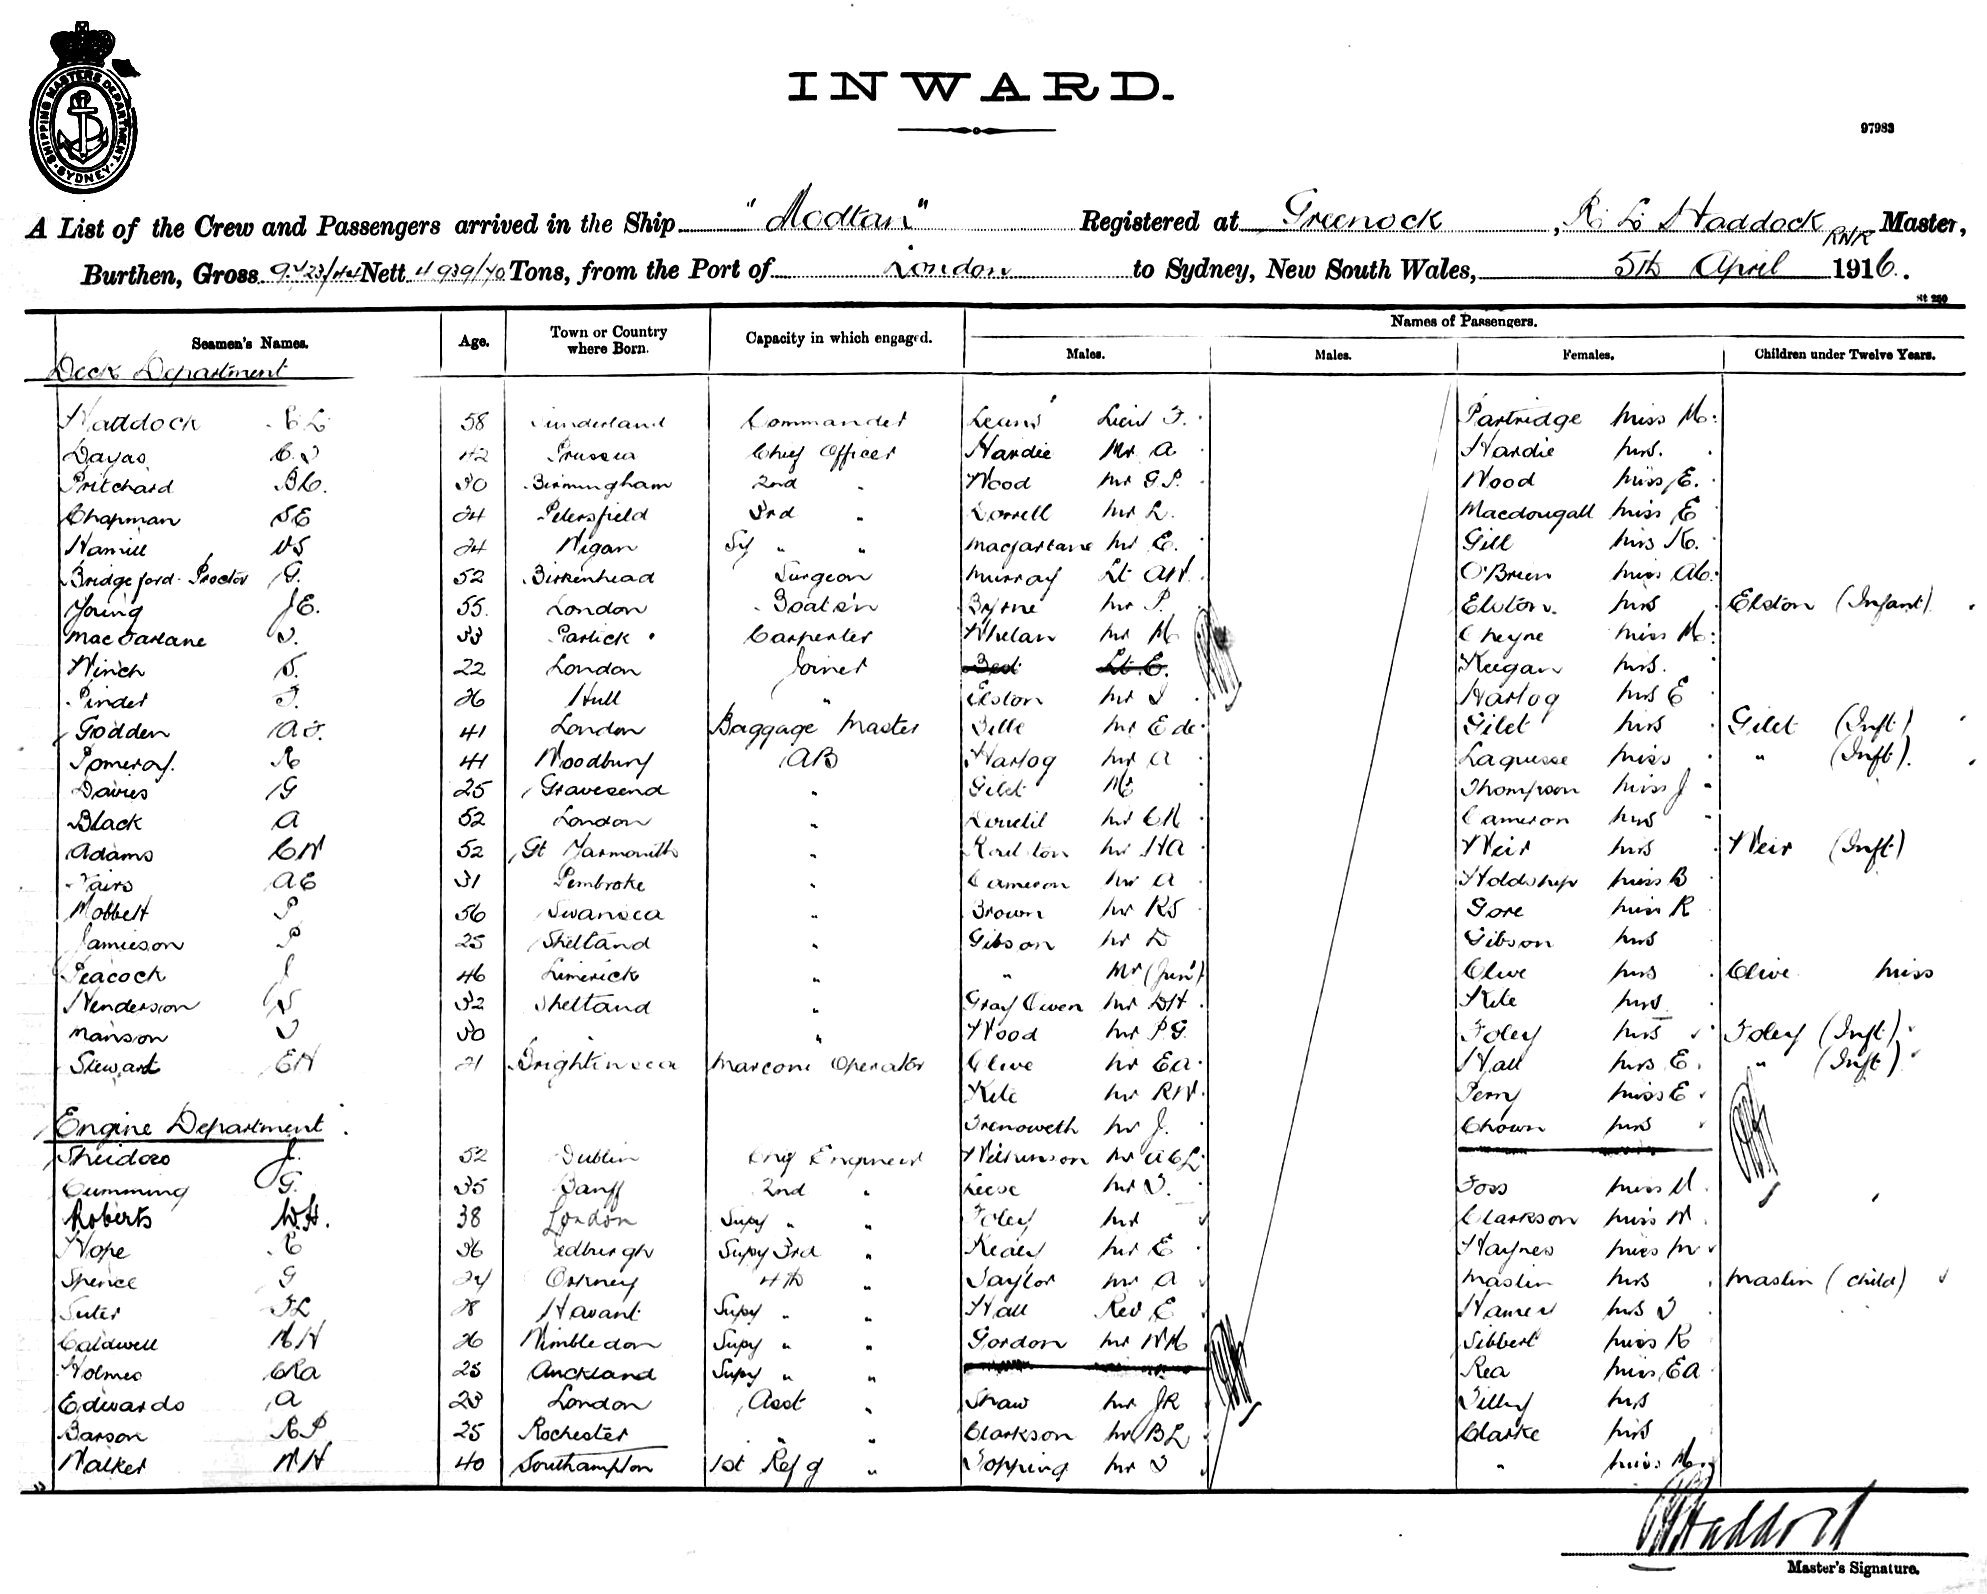 SHIPPING MASTERS DEPARTMENT · SYDNEY ·
INWARD.
97983
A List of the Crew and Passengers arrived in the Ship "Modtan" Registered at Greenock, R. L. Haddock RNR Master,
Burthen, Gross Nett 4939/70 Tons, from the Port of London to Sydney, New South Wales, 5th April 1916.
St 250
Names of Passengers.
Seamen's Names. Age. Town or Country where Born. Capacity in which engaged. Males. Males. Females. Children under Twelve Years.
Deck Department
Haddock R L 58 Sunderland Commander Lieut F. Partridge Miss M.
Dayas C. J 42 Prussia Chief Officer Hardie Mr A Hardie Mrs.
Pritchard B C. 30 Birmingham 2nd " Wood Mr G. P. Wood Miss E.
Chapman S E 24 Petersfield 3rd " Dorrell Mr L. Macdougall Miss E
Hamill 24 Wigan " " Macfarlane Mr E. Gill Miss K.
Bridgeford-Procter G. 52 Birkenhead Surgeon Murray Lt A W. O'Brien Miss A C.
Young J E. 55 London Boats'n Byrne Mr P. Elston Mrs Elston (Infant)
MacFarlane J. 33 Partick Carpenter Whelan Mr M Cheyne Miss M.
Winch S. 22 London Joiner Keegan Mrs.
Pinder F. 26 Hull " Elston Mr J Hartog Mrs E
Godden A J. 41 London Baggage Master Mr E de Gilet Mrs Gilet (Inft)
Pomeroy. R 41 Woodbury AB Hartog Mr A Laquesse Miss " (Inft).
Davies G 25 Gravesend " Gilet Mr Thompson Miss J
Black A 52 London " Mr C H Cameron Mrs
Adams C W 52 Gt Yarmouth " Mr H A Weir Mrs Weir (Inft)
A E 31 Pembroke " Cameron Mr A Holdship Miss B
Mobbett P 56 Swansea " Brown Mr R S Gore Miss R
Jamieson P 25 Shetland " Gibson Mr D Gibson Mrs
Peacock J 46 Limerick " " Mr (Junr) Clive Mrs Clive Miss
Henderson 32 Shetland " Gray Owen Mr D H Kite Mrs
Manson J 30 " " Wood Mr P G. Foley Mrs Foley (Inft)
Stewart E H 21 Brightlinsea Marconi Operator Clive Mr E A Hall Mrs E. " (Inft)
Kite Mr R W. Perry Miss E
Engine Department Trenoweth Mr J. Chown Mrs
J. 52 Dublin Chf Engineer Wilkinson Mr A C L
Cumming G. 35 Banff 2nd " Leese Mr J. Foss Miss M.
Roberts W. H. 38 London Supy " " Foley Mr Clarkson Miss W
Hope R 36 Edburgh Supy 3rd " Kealy Mr E Haynes Miss M
Spence G 24 Orkney 4th " Taylor Mr A Maslin Mrs Maslin (child)
Suter F L 28 Havant Supy " " Hall Rev E Hamer Mrs J
Caldwell W H 26 Wimbledon Supy " " Gordon Mr W M Sibbert Miss R
Holmes C R A 25 Auckland Supy " " Rea Miss E A
Edwards A 23 London Asst " Shaw Mr J R Tilley Mrs
Barson R P 25 Rochester " " Clarkson Mr B L Clarke Mrs
Walker W H 40 Southampton 1st Refg " Topping Mr J " Miss M
R L Haddock
Master's Signature.